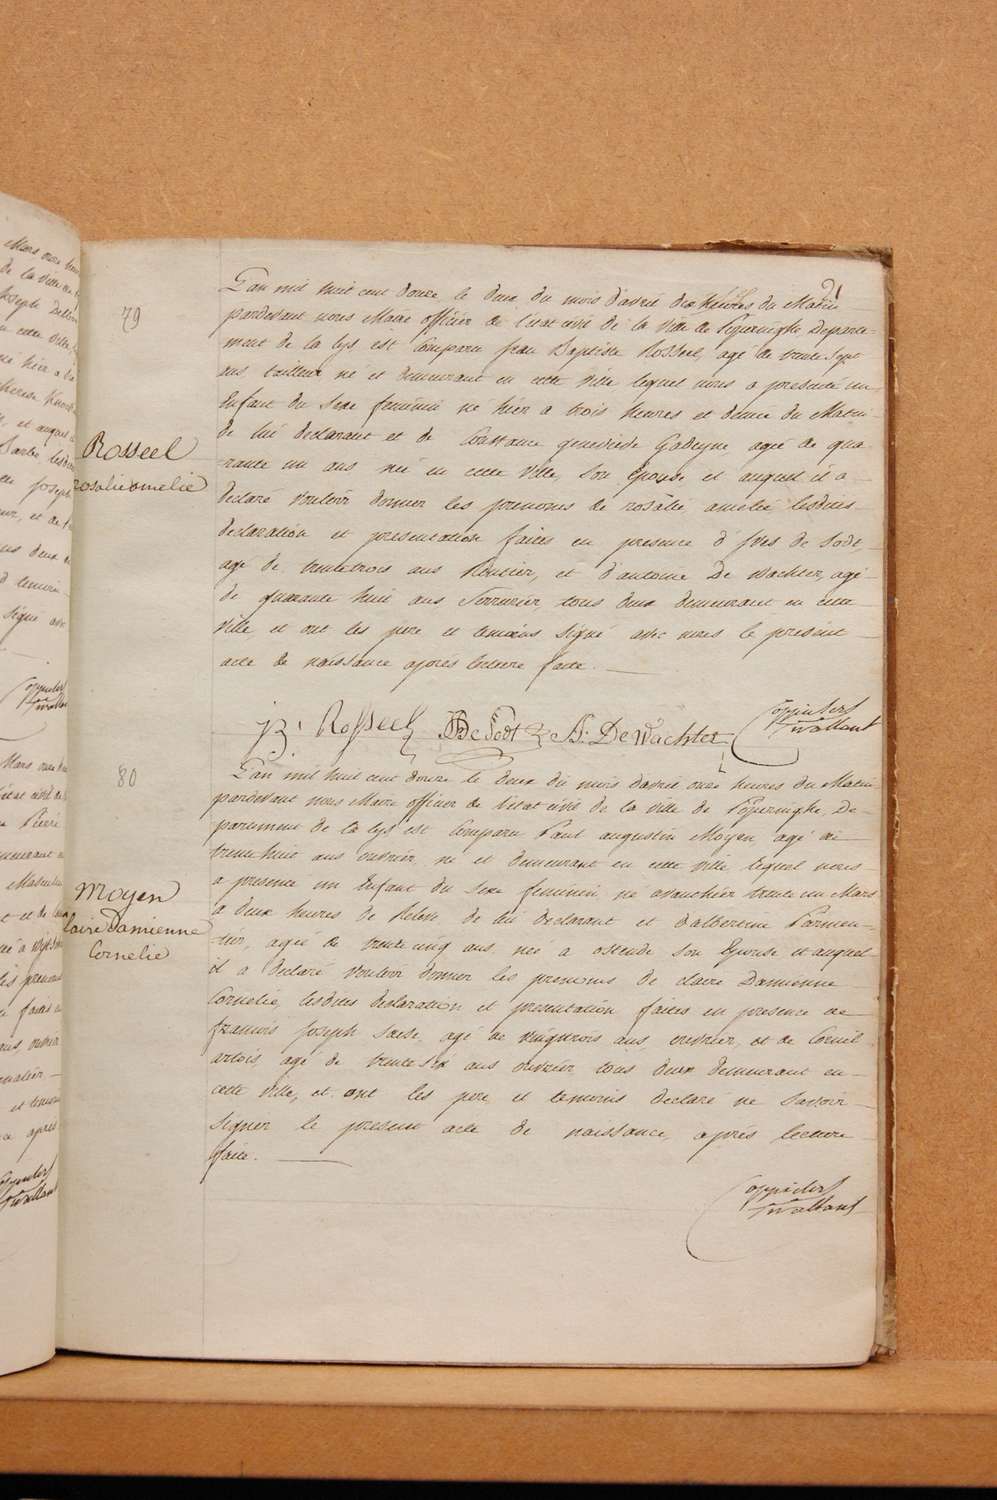 21
79
L'an mil huit cent douze le deux du mois d'avril dix heures du Matin
pardevant nous Maire officier de l'état civil de la ville de Poperinghe Departe-
ment de la Lys est Comparu jean Baptiste Rosseel, agé de trente Sept
ans tailleur né et demeurant en cette ville lequel nous a presenté un
Enfant du Sexe feminin né hier a trois heures et demie du Matin
de lui declarant et de Constance genevieve Gadeyne agée de qua-
Rosseel
rante un ans née en cette ville, Son Epouse et auquel il a
rosalie amelie
declaré vouloir donner les prenoms de rosalie amelie lesdites
declaration et presentation faites en presence d'Ives de Sodt,
agé de trente trois ans Rentier, et d'antoine De Wachter, agé
de quarante huit ans Serrurier, tous deux demeurant en cette
ville et ont les pere et temoins Signé avec nous le présent
acte de naissance après lecture faite.
JB: Rosseel DeSodt A: DeWachter
80
L'an mil huit cent douze le deux du mois d'avril onze heures du Matin
pardevant nous Maire officier de l'état civil de la ville de Poperinghe, De-
partement de la Lys est Comparu Paul augustin Moyen agé de
trente huit ans ouvrier, né et demeurant en cette ville lequel nous
a presenté un Enfant du Sexe feminin né avant hier trente un Mars
Moyen
a deux heures de Relevé de lui declarant et d'albertine Parmen-
Claire Damienne
tier, agée de trente cinq ans née a ostende Son Epouse et auquel
Cornelie
il a declaré vouloir donner les prenoms de claire Damienne
Cornelie, lesdites declaration et presentation faites en presence de
francois Joseph agé de vingt trois ans ouvrier, et de Corneil
artois, agé de trente Six ans ouvrier tous deux demeurant en
cette ville, et ont les pere et temoins declaré ne Savoir
Signer le present acte de naissance, après lecture
faite.